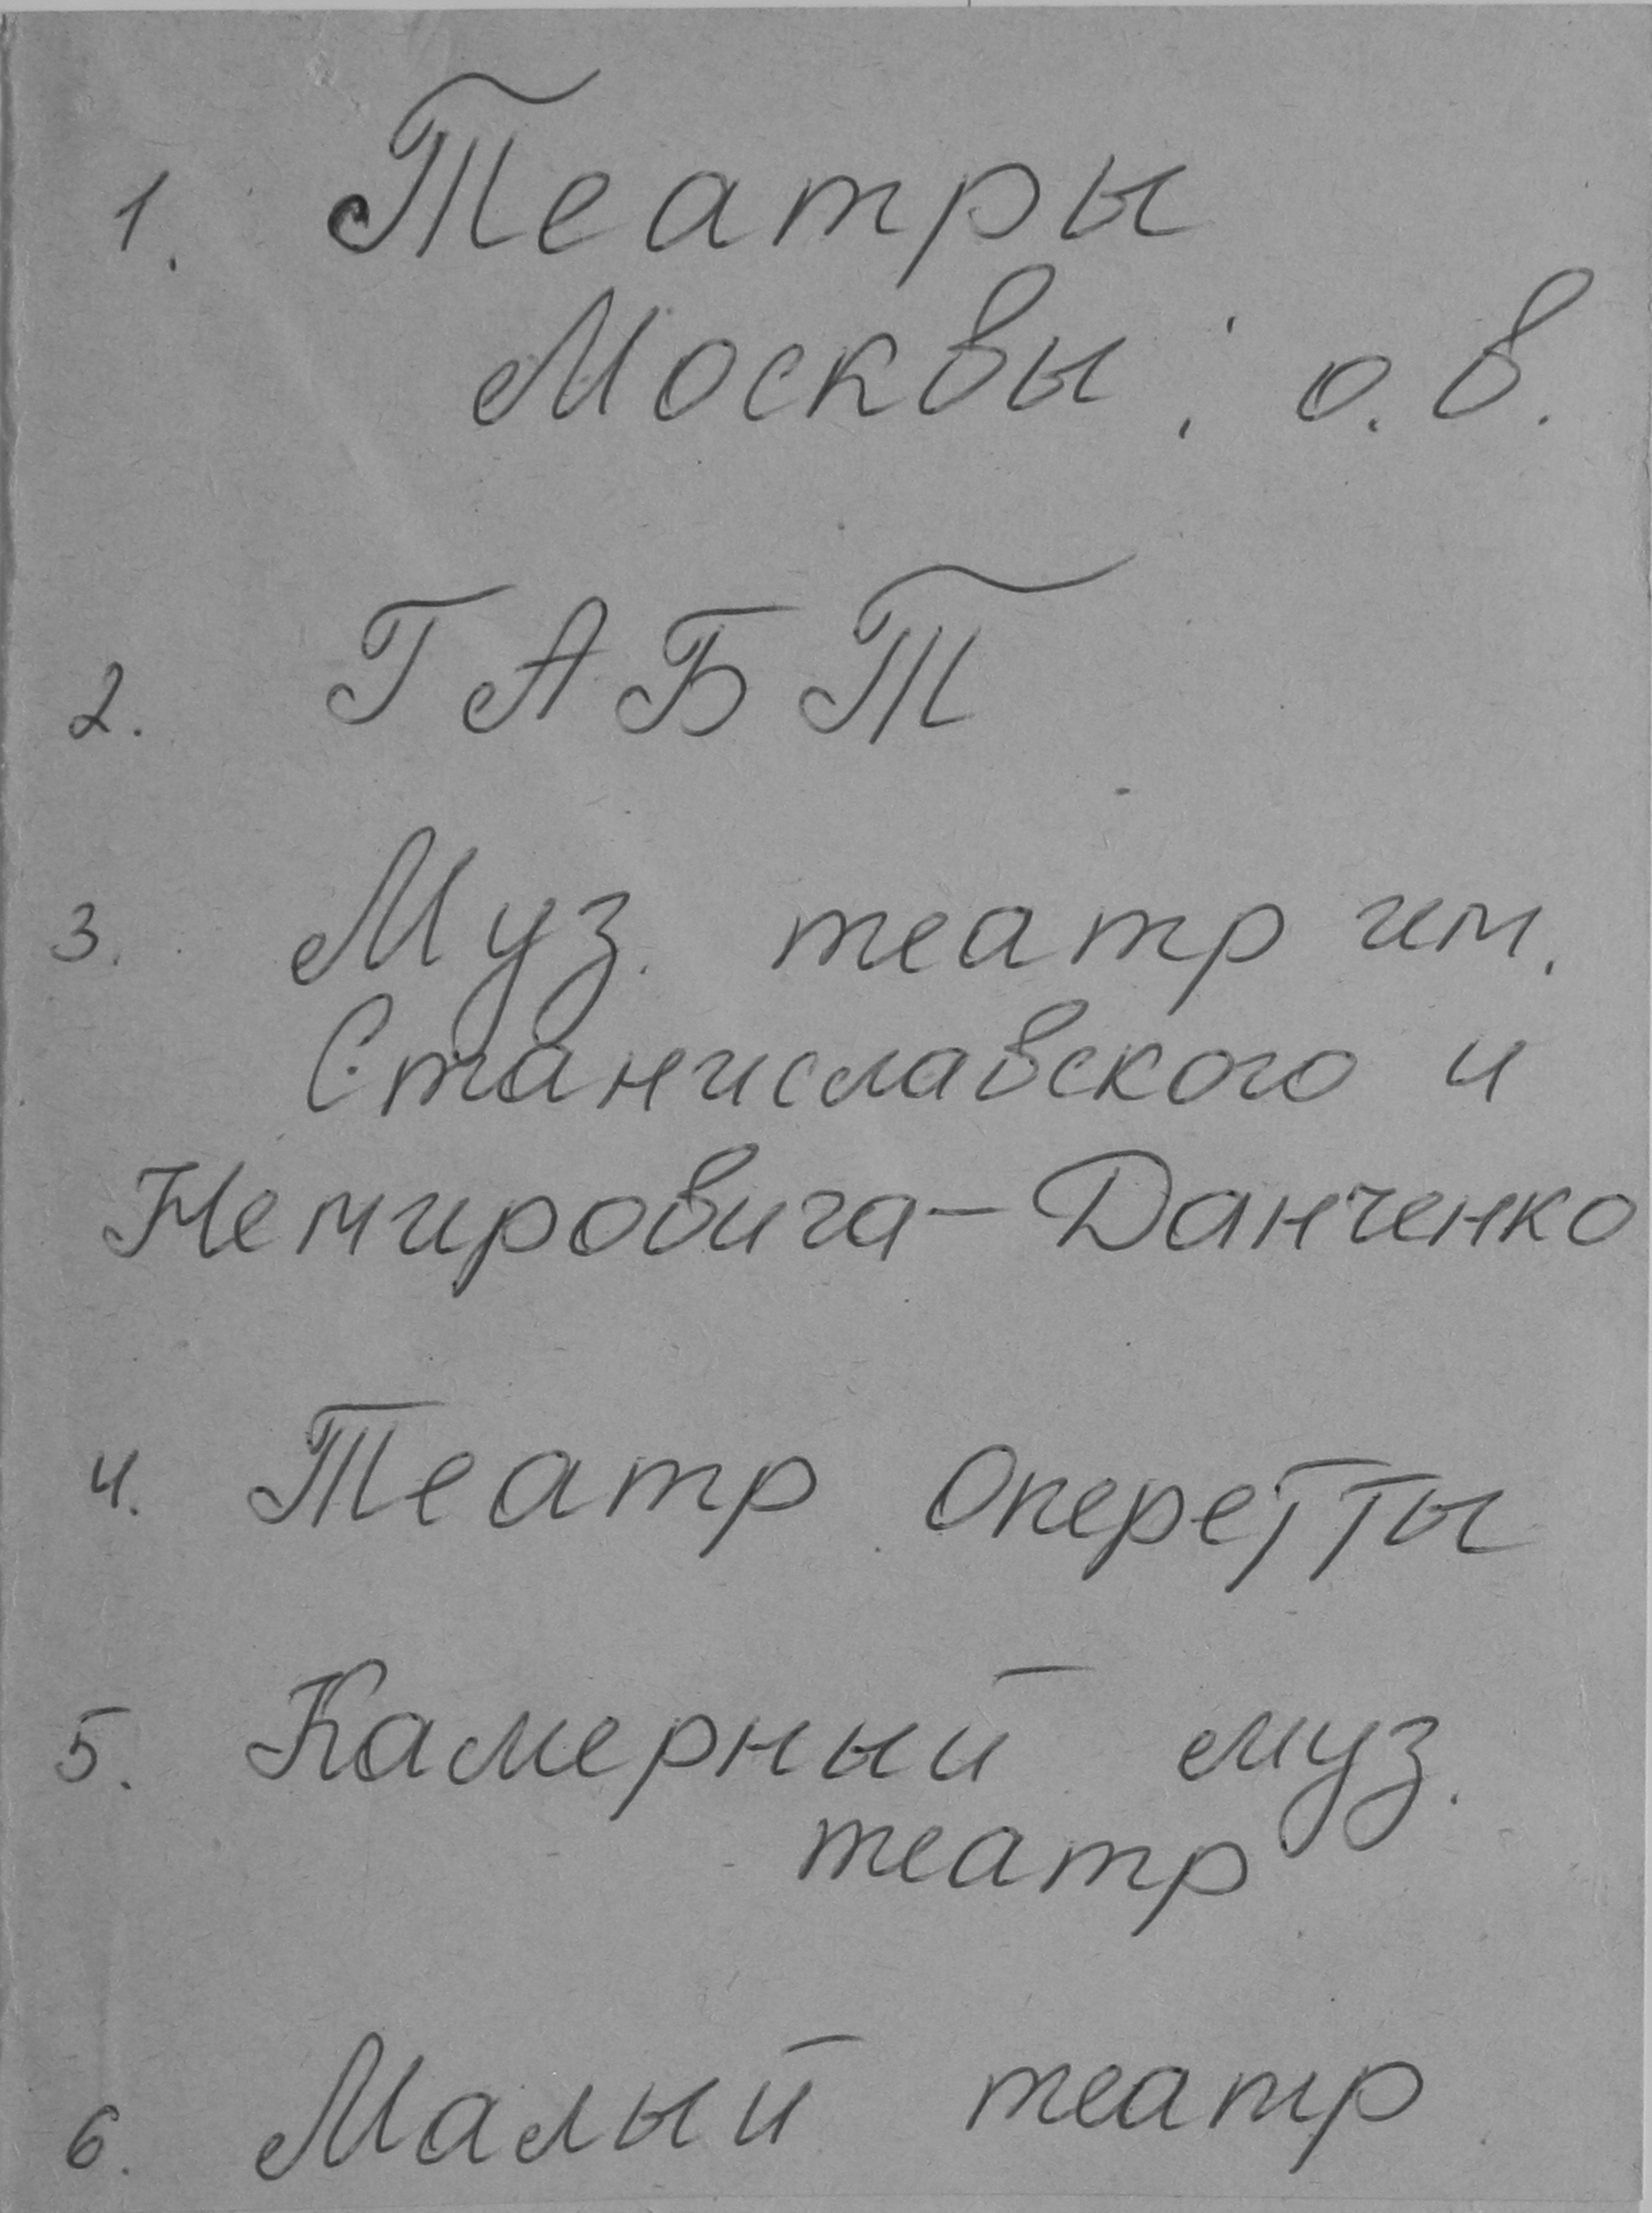 1. Театры
Москвы: о.в.
2. ГАБТ
3. Муз. театр им.
Станиславского и
Немировича-Данченко
4. Театр Оперетты
5. Камерный муз.
театр
6. Малый театр